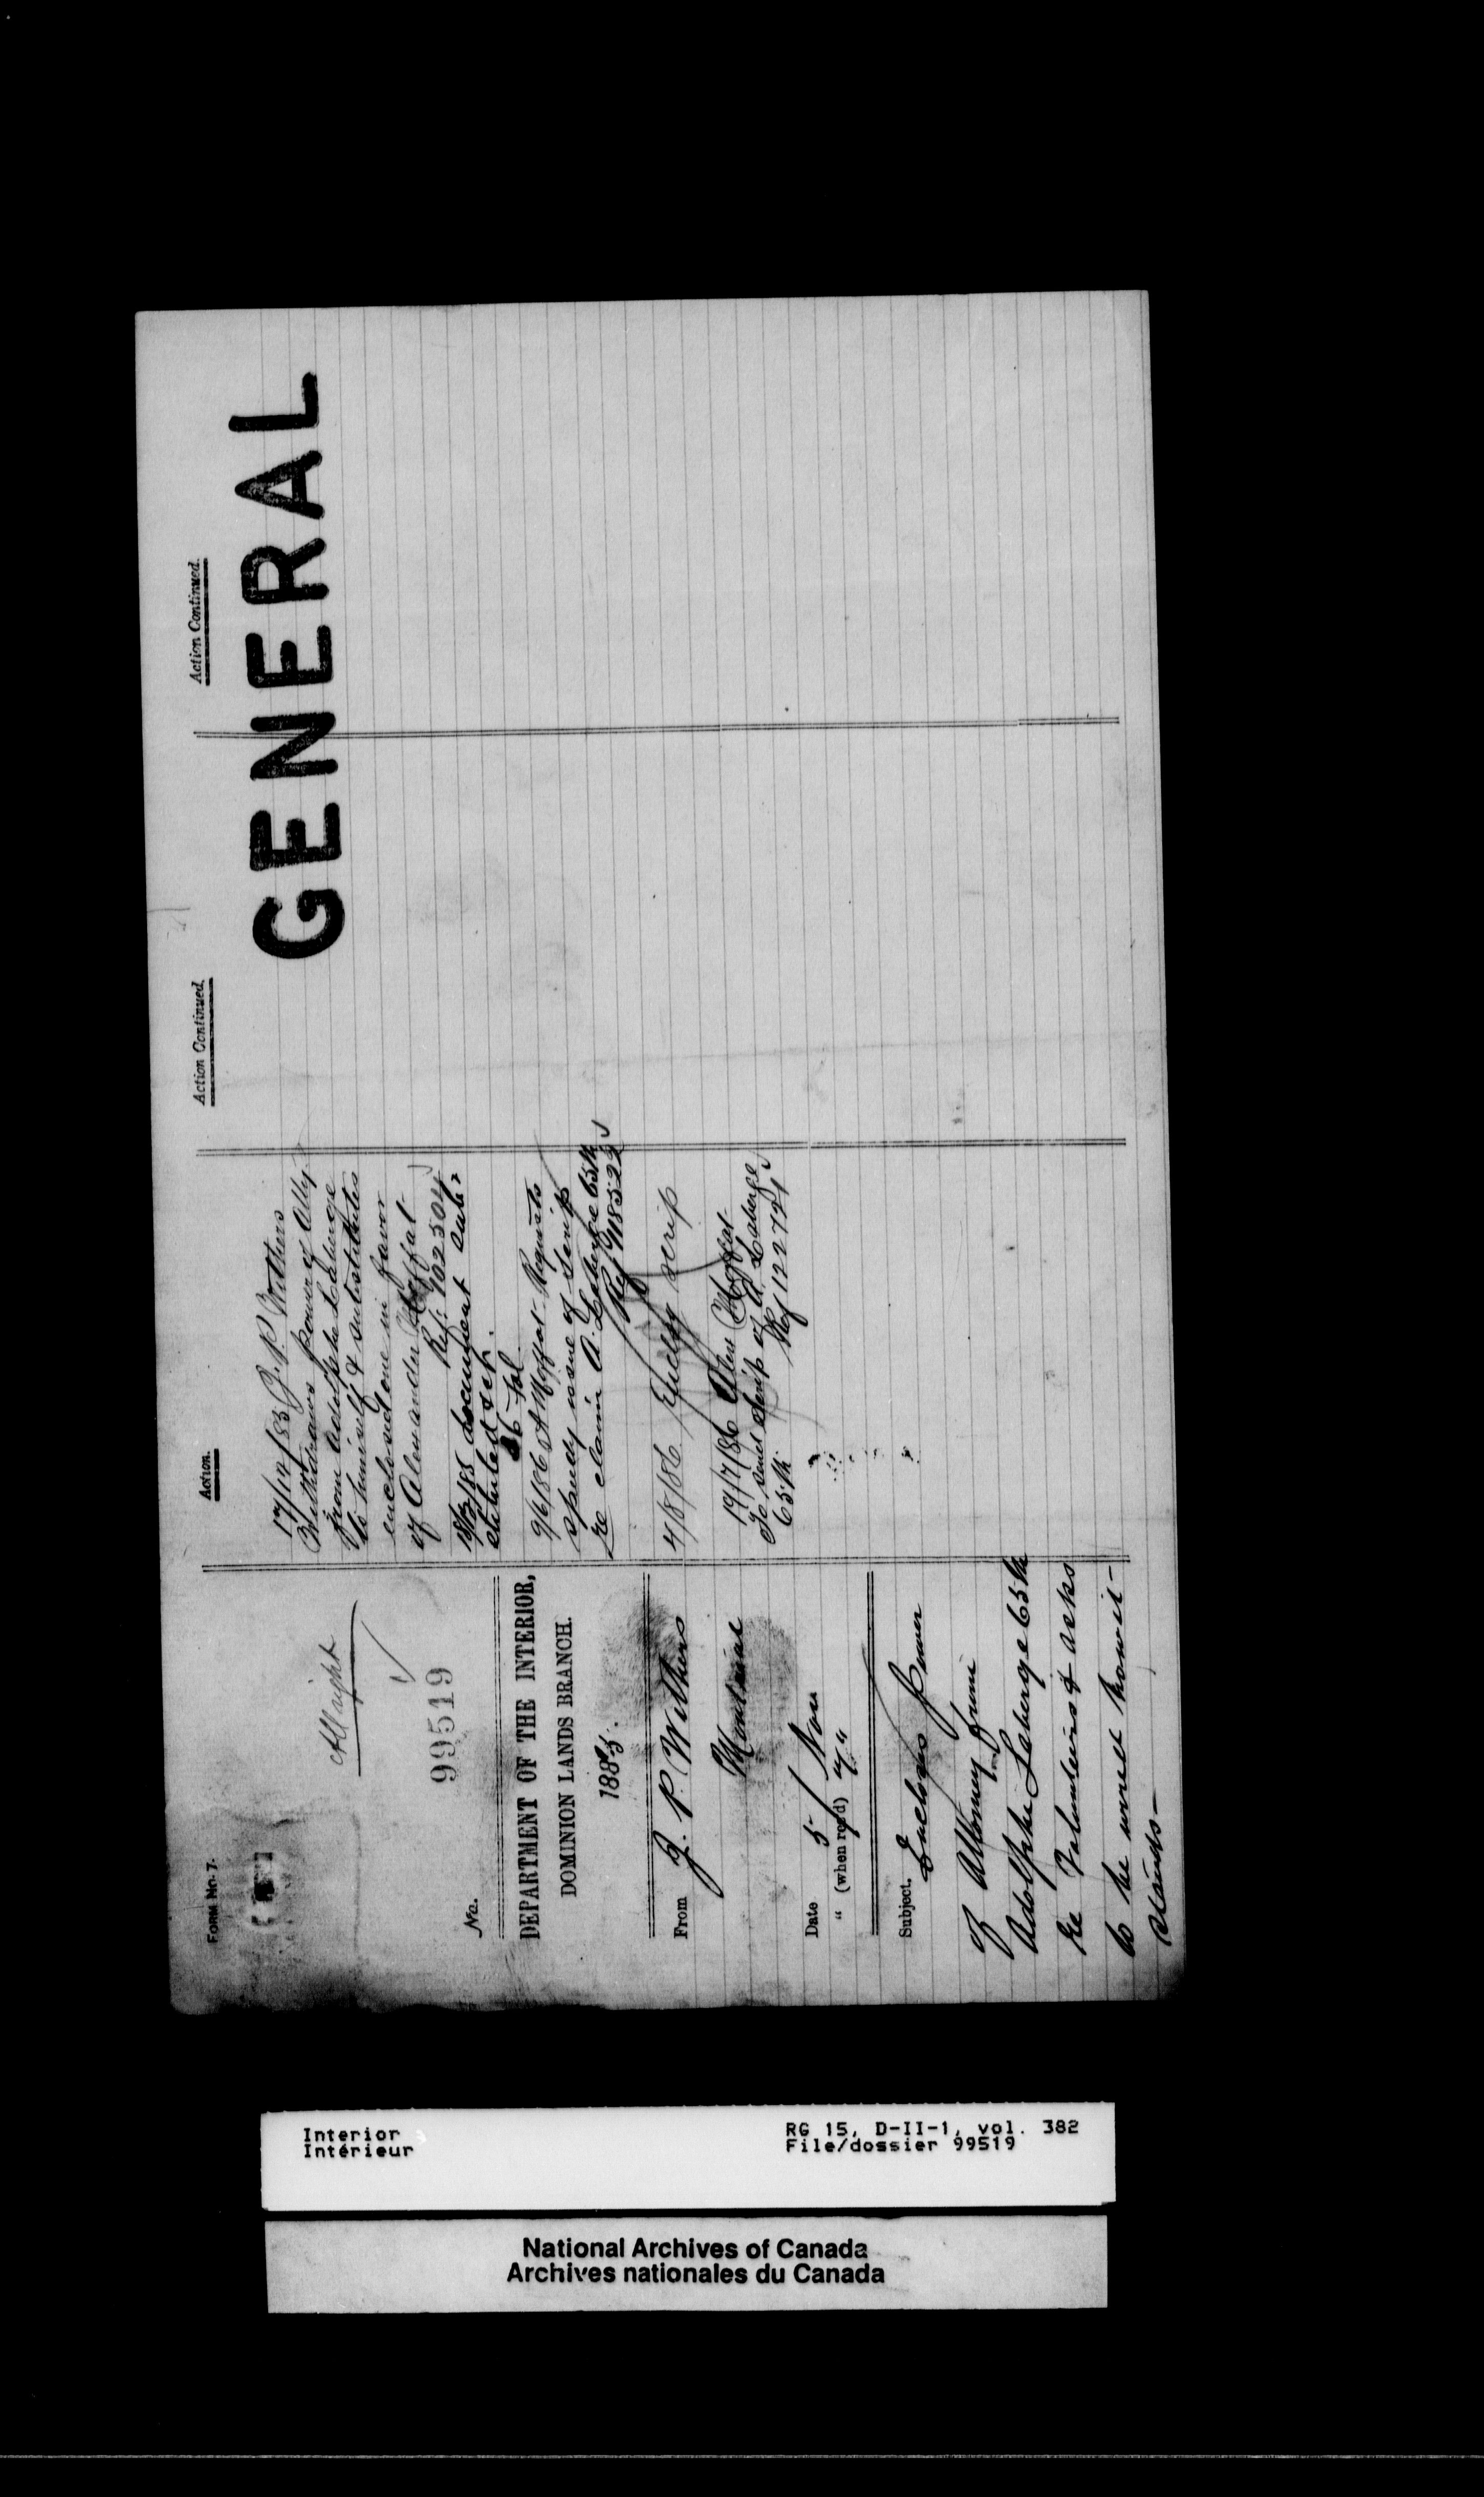 FORM No. 7.
Allright
99519
No.
DEPARTMENT OF THE INTERIOR,
DOMINION LANDS BRANCH.
1885.
From J. P. Withers
Montreal
Date 5 / Nov
" (when rec'd) 7 "
Subject. Encloses Power
of Attorney from
Adolphe Laberge 65th
re Volunteers & asks
to be
stands—
Action.
17/12/85 J. P. Withers
Withdraws power of Atty.
from Adolphe Laberge
to himself & substitutes
enclosed one in favor
of Alexander Moffat
Ref: 102504
document
stituted
9/6/86 A Moffat Requests
speedy issue of Scrip
re claim A. Laberge 65th
Ref 118522
4/8/86 scrip
19/7/86 Alex Moffat
To send scrip of A. Laberge
65th Ref 122721
Action Continued.
Action Continued.
GENERAL
Interior
Intérieur
RG 15, D-II-1, vol. 382
File/dossier 99519
National Archives of Canada
Archives nationales du Canada